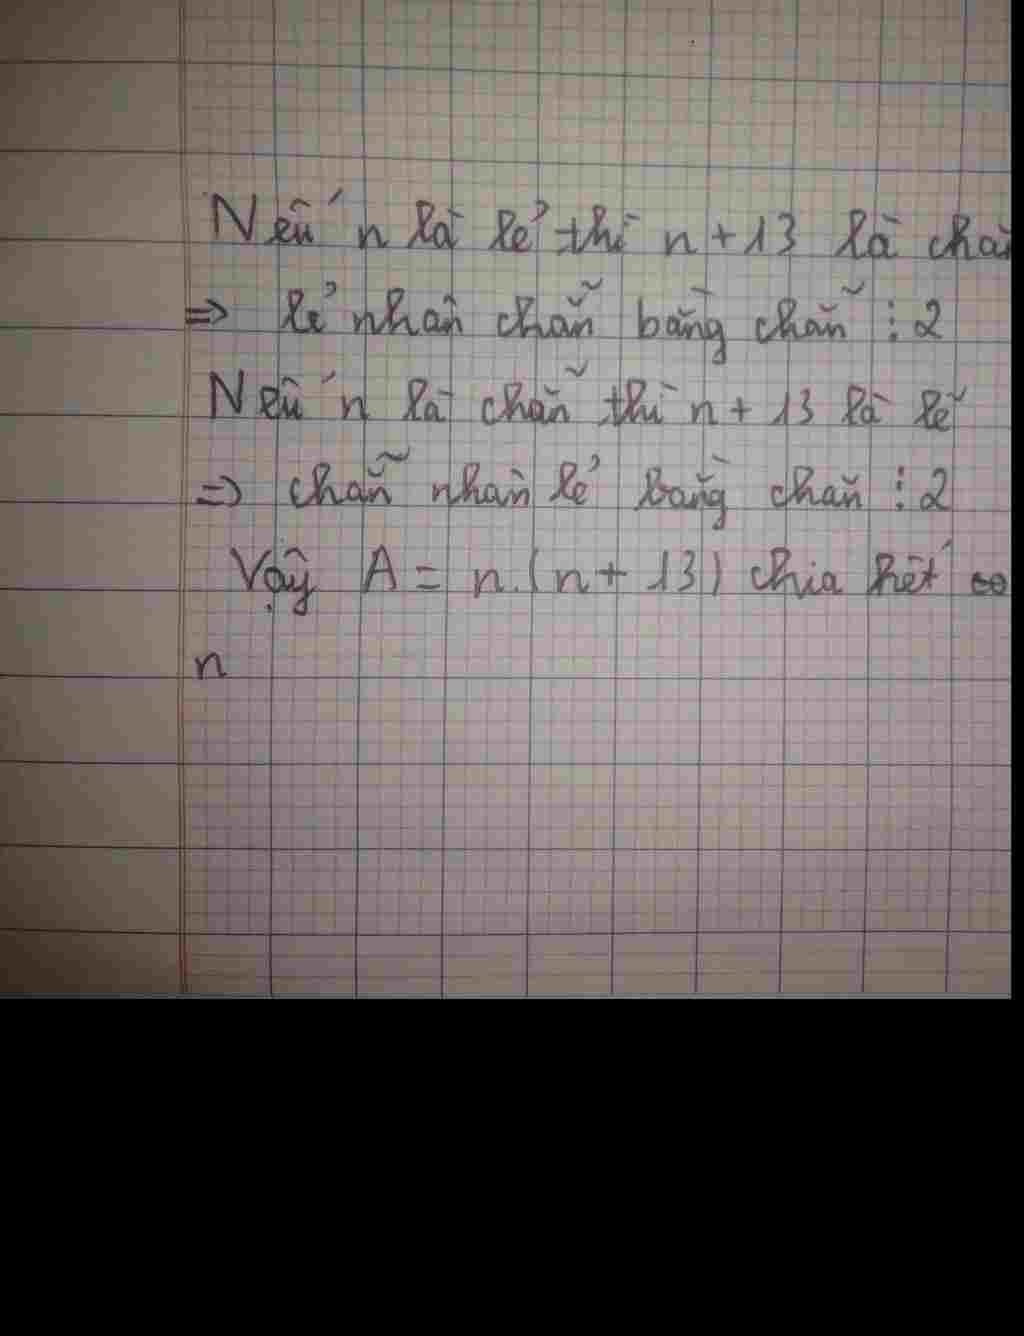 Nếu n là lẻ thì n + 13 là
=> lẻ nhân chẵn bằng chẵn ⋮ 2
Nếu n là chẵn thì n + 13 là lẻ
=> chẵn nhân lẻ bằng chẵn ⋮ 2
Vậy A = n.(n + 13) chia hết
n